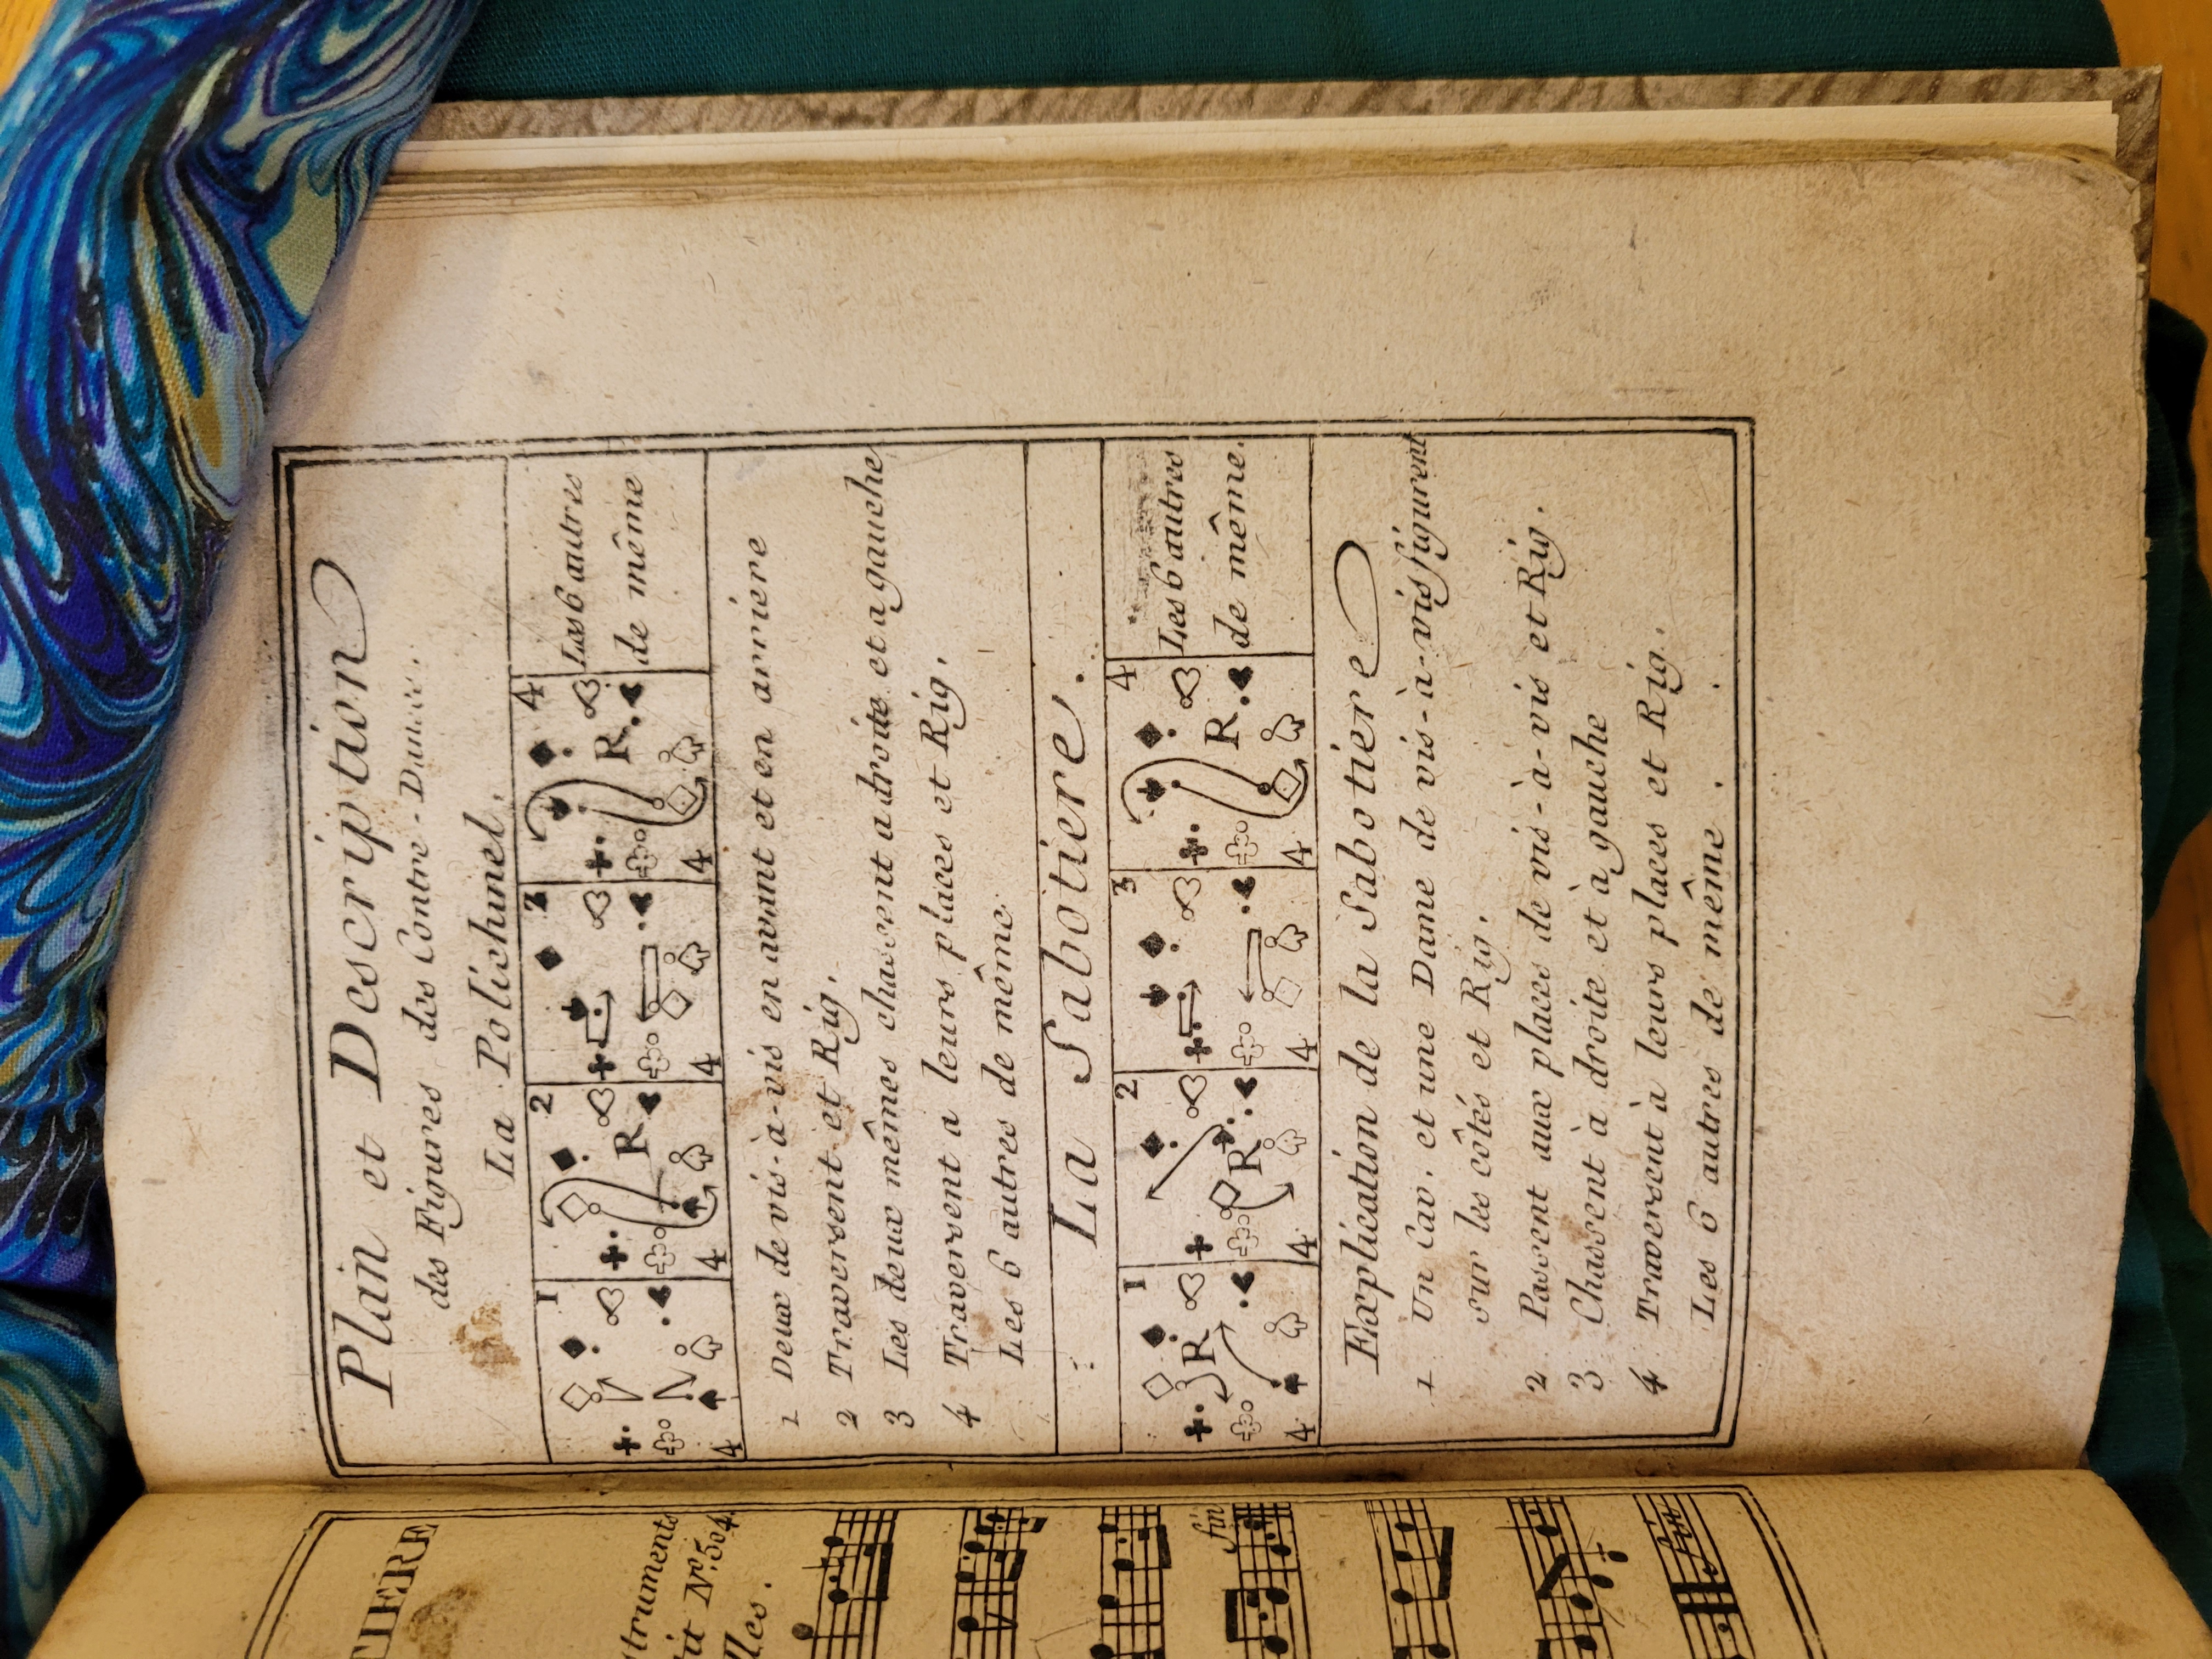 Plain et Description
des Figures des Contre-Danses.
La Polichinel.
1 2 3 4
R R
4 4 4 4
Les 6 autres
de même
1 Deux de vis-à-vis en avant et en arriere
2 Traversent et Rig.
3 Les deux mêmes chassent a droite et a gauche
4 Traversent a leurs places et Rig.
Les 6 autres de même
La Sabotiere.
1 2 3 4
R R R
4 4 4 4
Les 6 autres
de même.
Explication de la Sabotiere
1 Un Cav. et une Dame de vis-à-vis figurent
sur les côtés et Rig.
2 Passent aux places de vis-à-vis et Rig.
3 Chassent à droite et à gauche
4 Traversent à leurs places et Rig.
Les 6 autres de même.
TIERE
struments
it Nº. 504.
lles.
fin
fin